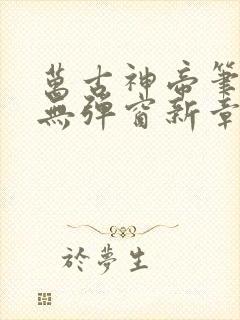 萬古神帝筆
無彈窗新章
於夢生